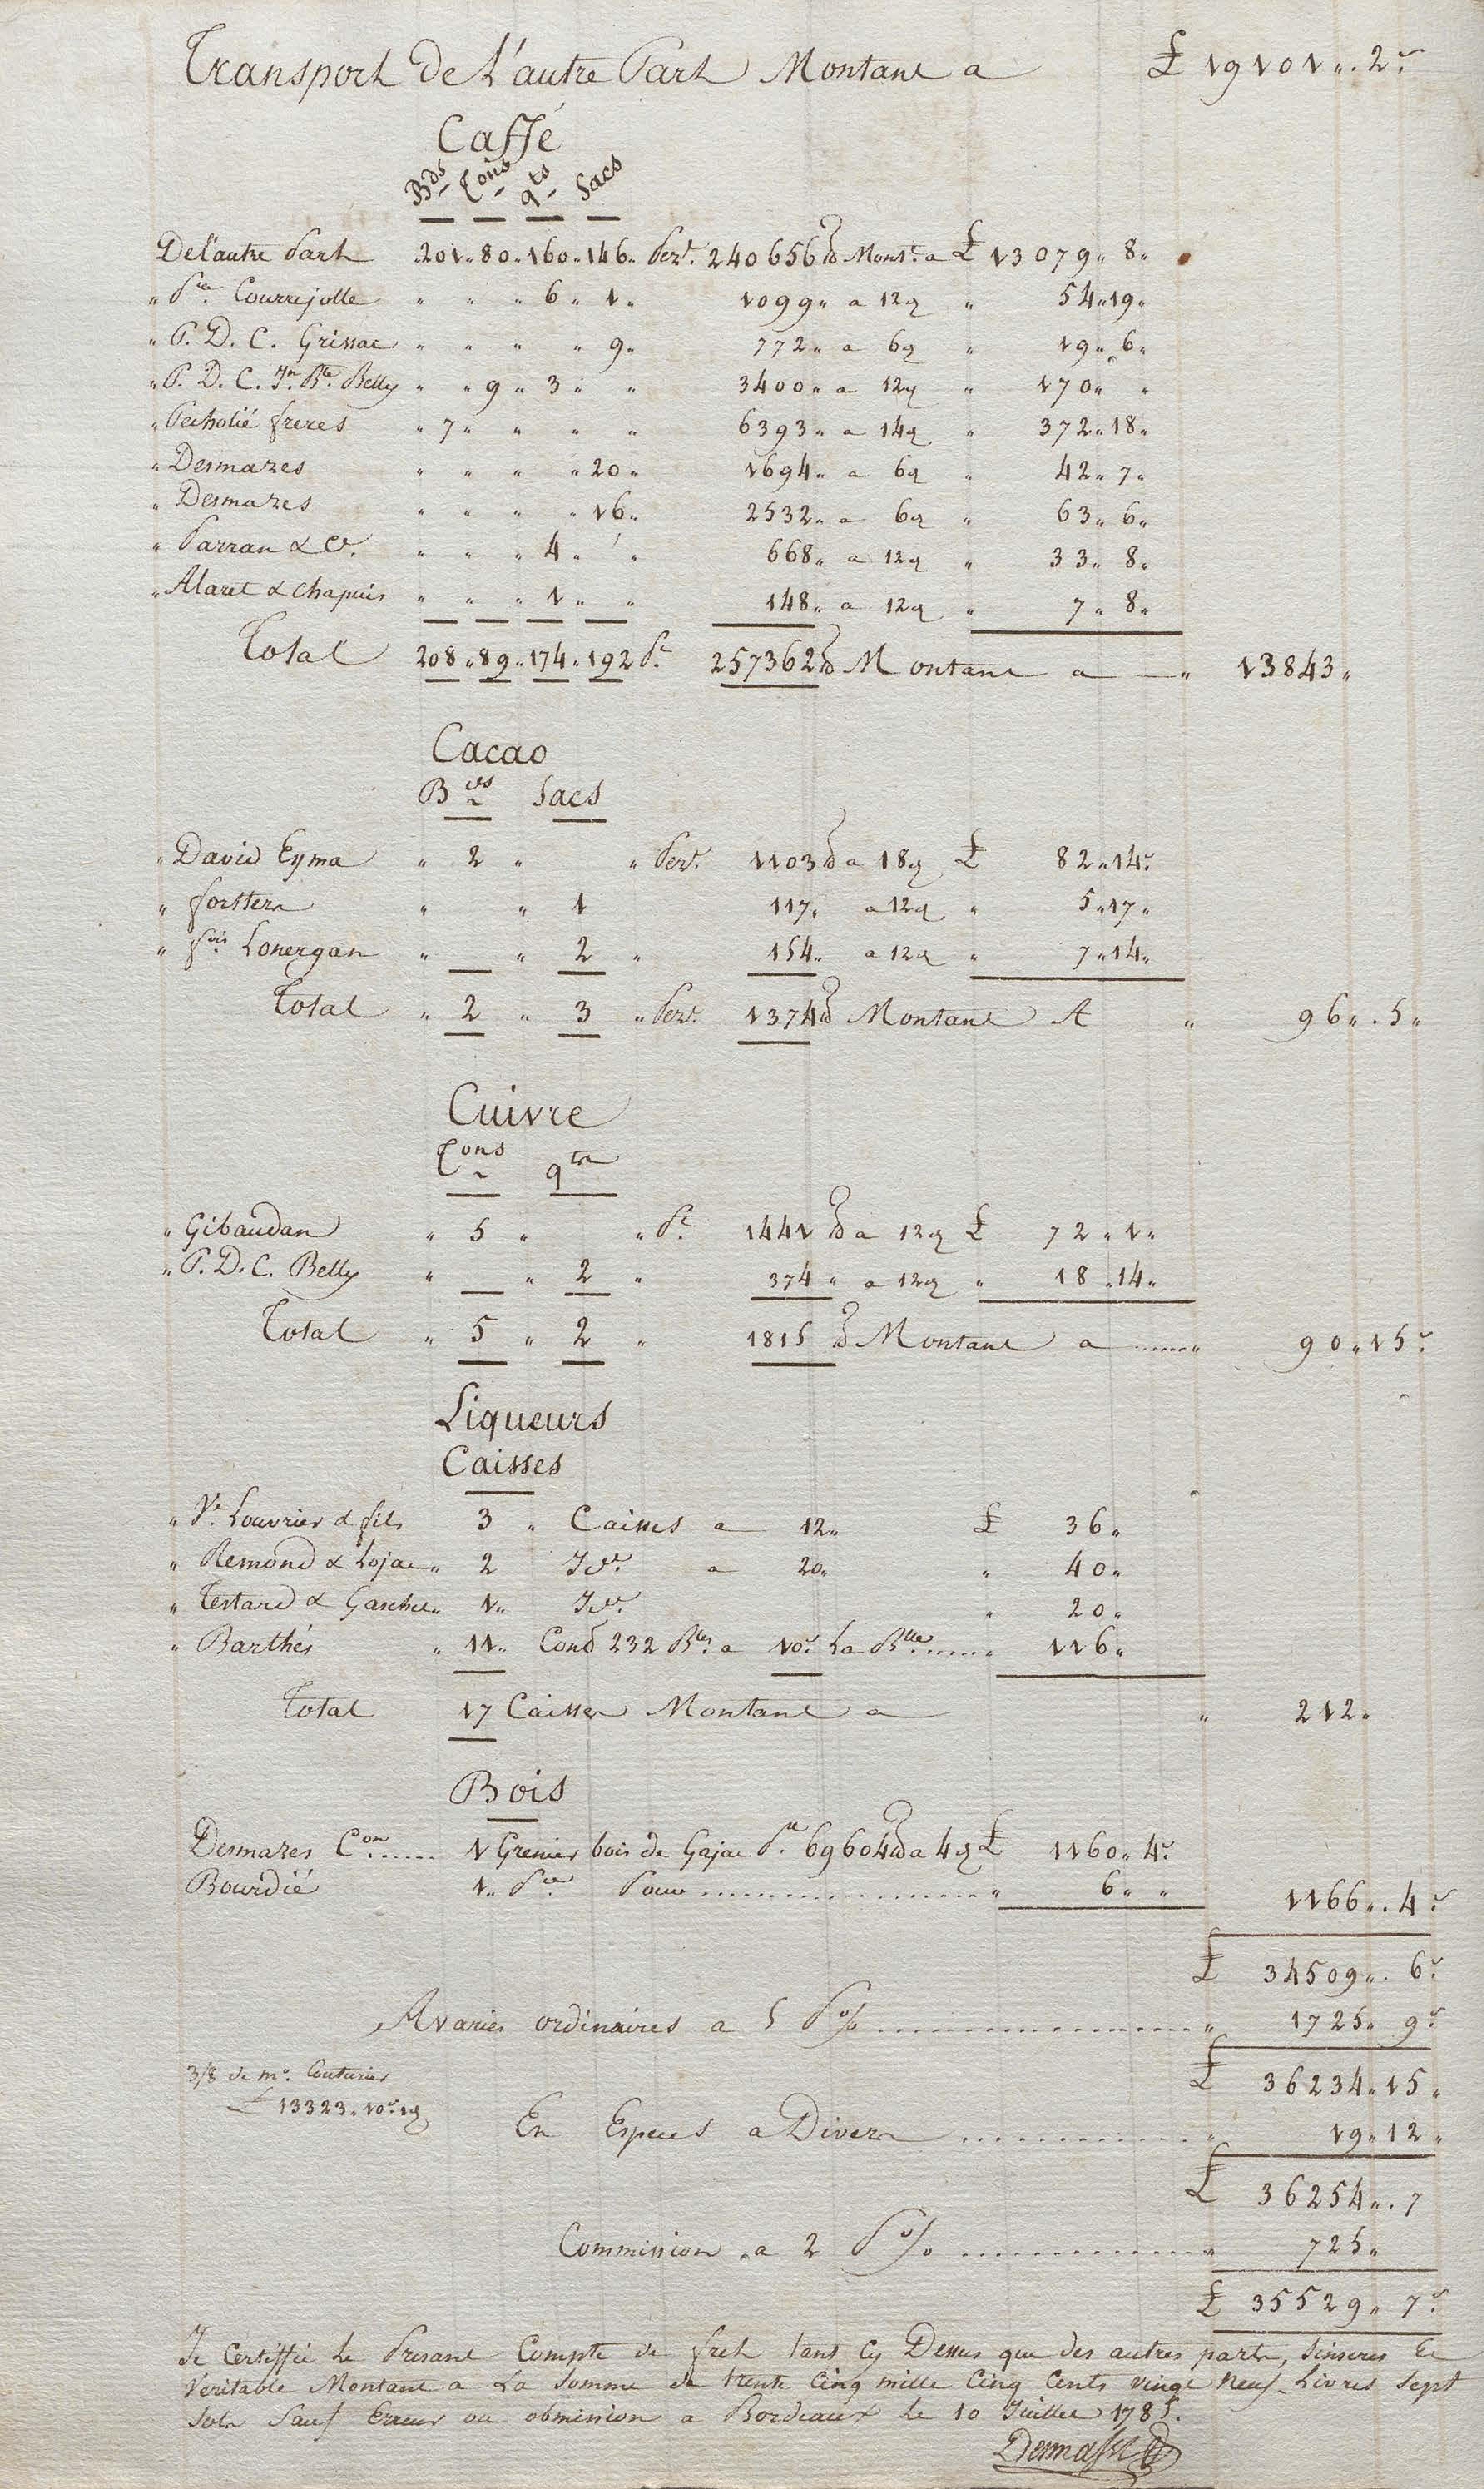 Transport De L'autre Part Montant a £ 19101 „. 2.s
Caffé
Bds Tons qts Sacs
De L'autre Part 201 „ 80 „ 160 „ 146 „ Pezt. 240656 lb Mont. a £ 13079 „ 8 „
„ Pre. Courrejolle „ „ „ 6 „ 1 „ 1099 „ a 12d „ 54 „ 19 „
„ P. D. C. Grissac „ „ „ „ 9 „ 772 „ a 6d „ 19 „ 6 „
„ P. D. C. Jn. Bte. Belly „ „ 9 „ 3 „ „ 3400 „ a 12d „ 170 „ „
„ Pecholié freres „ 7 „ „ „ „ 6393 „ a 14d „ 372 „ 18 „
„ Desmazes „ „ „ „ 20 „ 1694 „ a 6d „ 42 „ 7 „
„ Desmazes „ „ „ „ 16 „ 2532 „ a 6d „ 63 „ 6 „
„ Parran & Ce. „ „ „ 4 „ „ 668 „ a 12d „ 33 „ 8 „
„ Alaret & Chapuis „ „ „ 1 „ „ 148 „ a 12d „ 7 „ 8 „
Total 208 „ 89 „ 174 „ 192 Pt. 257362 lb Montant a „ 13843 „
Cacao
Bds Sacs
„ David Eyma „ 2 „ „ Pezt. 1103 lb a 18d £ 82 „ 14.s
„ forster „ „ 1 117 „ a 12d „ 5 „ 17 „
„ fois Lonergan „ „ 2 „ 154 „ a 12d „ 7 „ 14 „
Total „ 2 „ 3 „ Pezt. 1374 lb Montant A „ 96 „. 5 „
Cuivre
Tons qts
„ Gibaudan „ 5 „ „ Pt. 1441 lb a 12d £ 72 „ 1 „
„ P. D. C. Belly „ „ 2 „ 374 „ a 12d „ 18 „ 14 „
Total „ 5 „ 2 „ 1815 lb Montant a ...... „ 90 „ 15.s
Liqueurs
Caisses
„ Ve. Louvrier & fils 3 „ Caisses a 12 „ £ 36 „
„ Remond & Lojac „ 2 Ide. a 20 „ „ 40 „
„ Testard & Gaschet „ 1 „ Ide. „ 20 „
„ Barthés „ 11 „ Cond 232 Bles. a 10.s La Blle. ...... „ 116 „
Total 17 Caisses Montant a „ 212 „
Bois
Desmazes Con. ...... 1 Grenier bois de Gajac Pt. 69604 lb a 4d £ 1160 „ 4.s
Bourdié 1 „ Pce. Pour ...................... „ 6 „ „ 1166 „. 4.s
£ 34509 „. 6.s
Avaries ordinaires a 5 P% ...................... „ 1725 „ 9.s
3/8 de mr. Couturier £ 36234 „ 15 „
£ 13323 „ 10.s 1d
En Especes a Divers .................. „ 19 „ 12 „
£ 36254 „. 7
Commission a 2 P% .................. „ 725 „
£ 35529 „ 7.s
Je Certiffie Le Presant Compte de fret tant Cy Dessus que des autres parts, Sinseres Et
Veritable Montant a La Somme de trente Cinq mille Cinq Cents vingt Neuf Livres Sept
Sols Sauf Erreur ou obmission a Bordeaux Le 10 Juillet 1785.